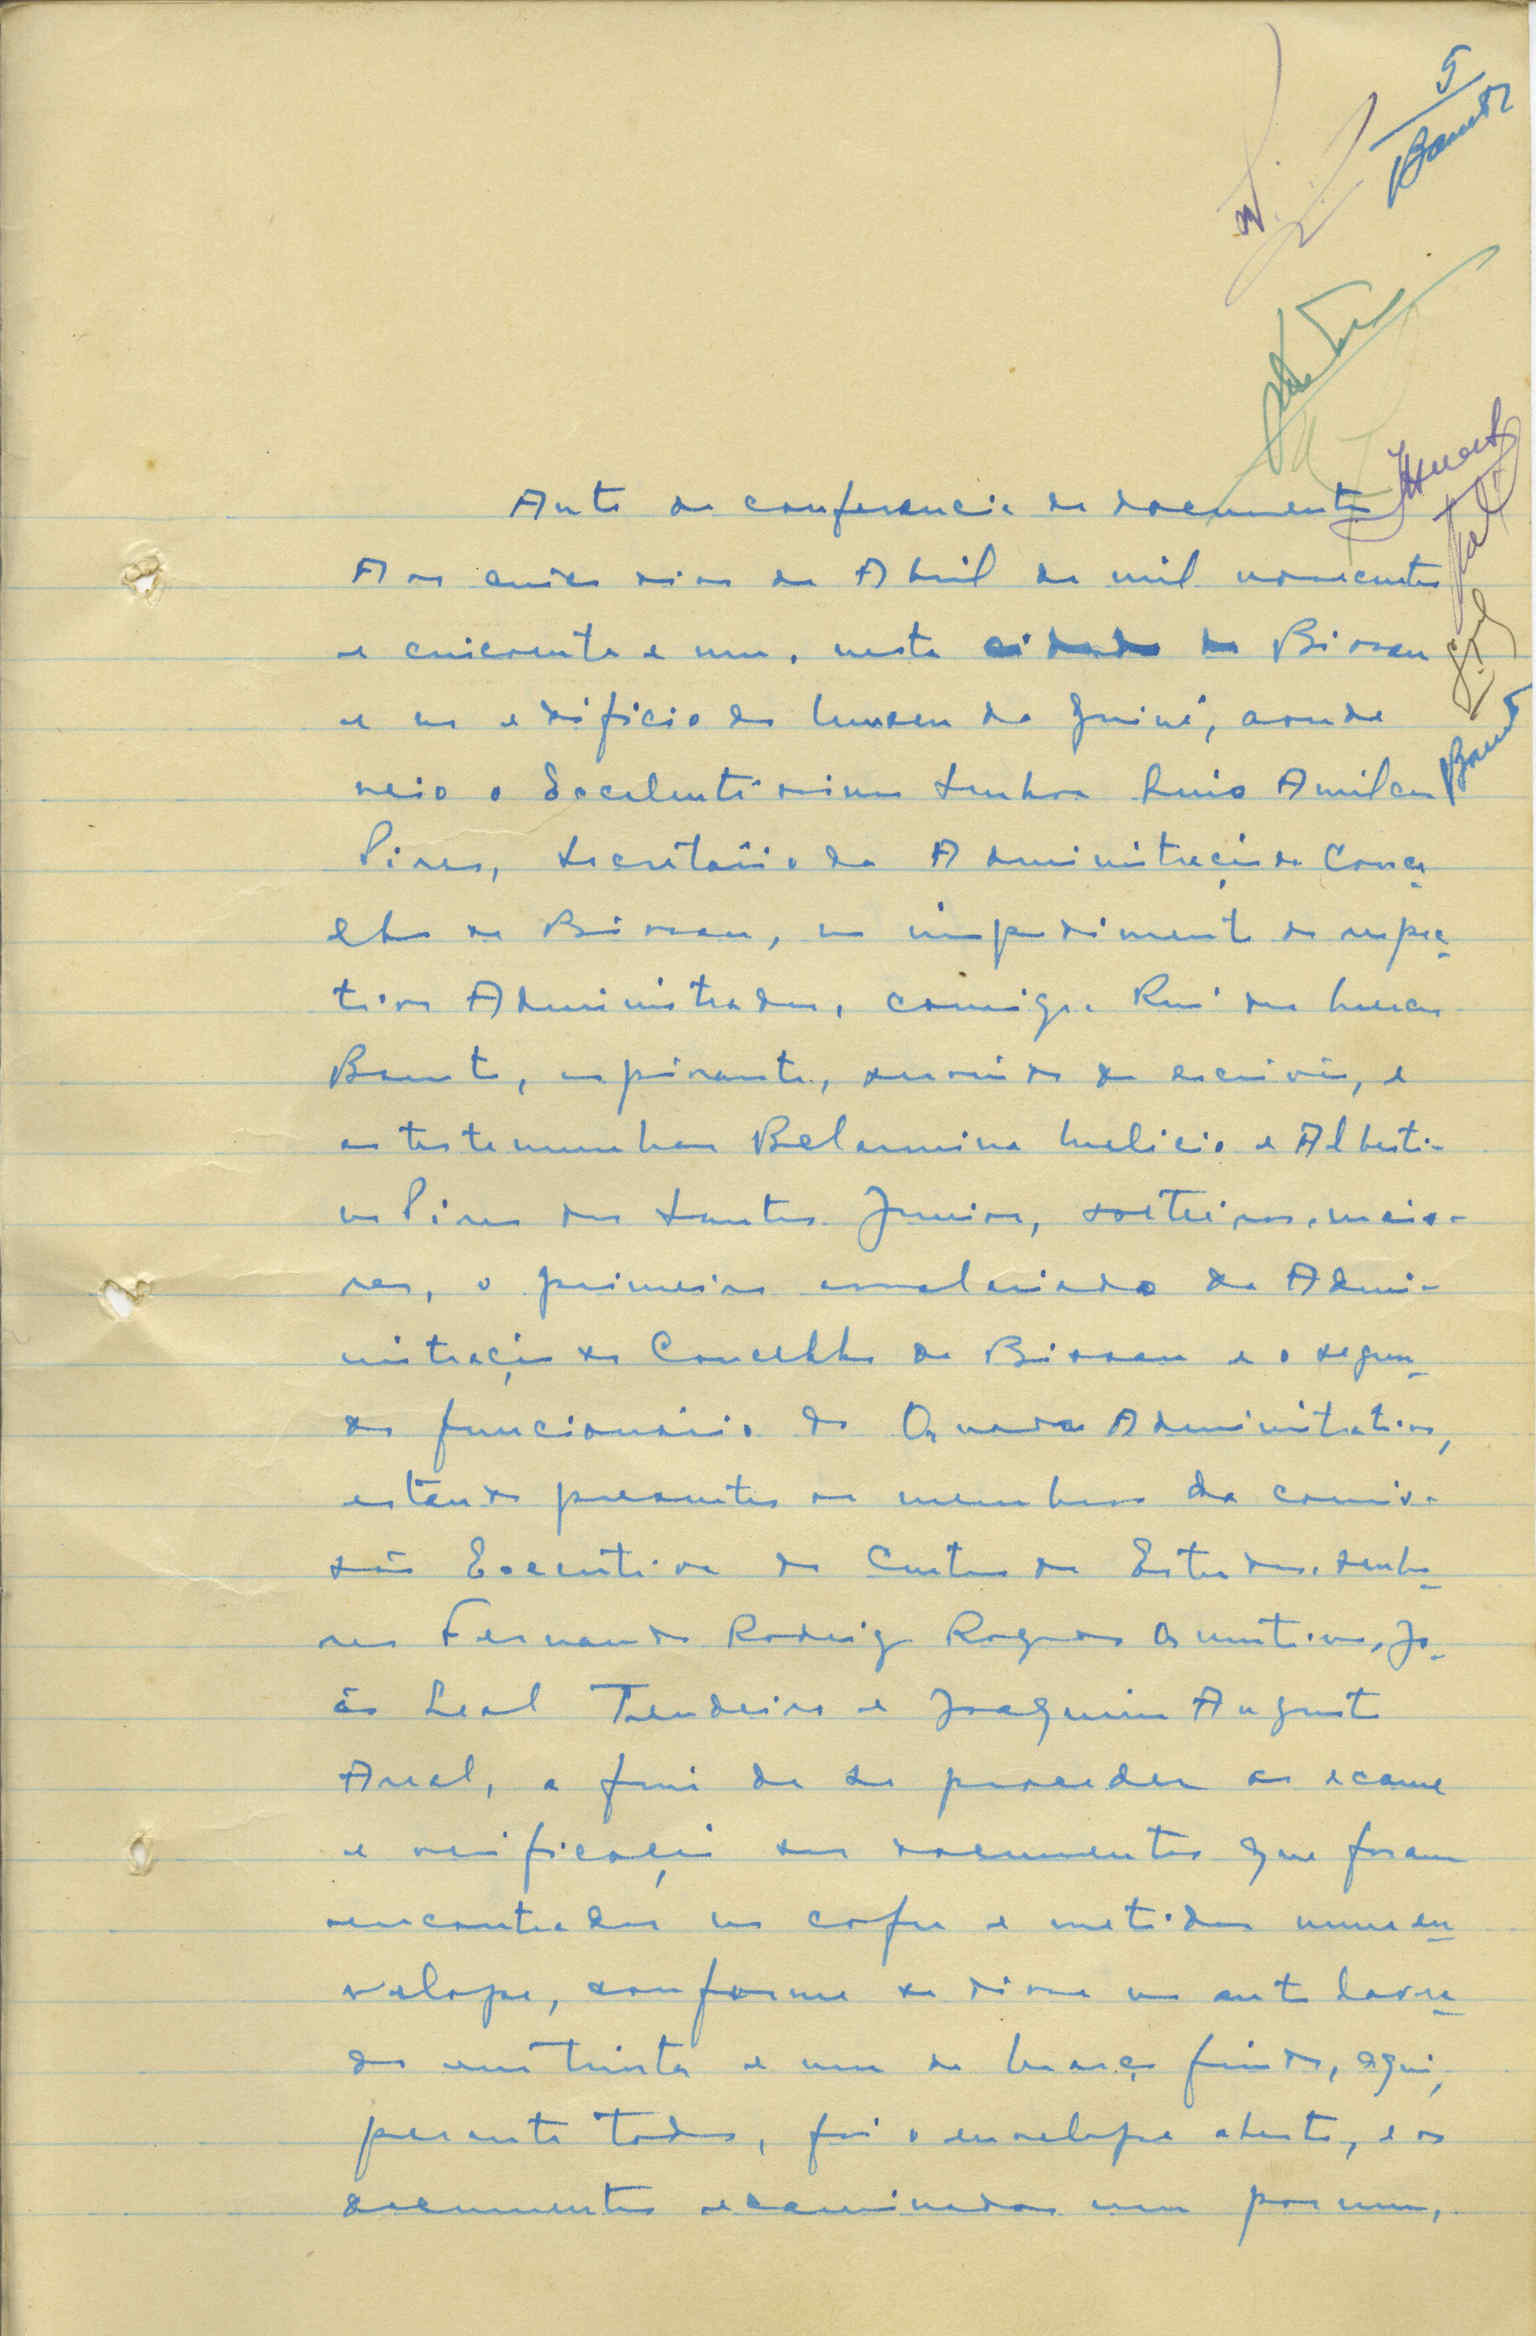 5
Auto de conferencia de documentos
Aos cinco dias de Abril de mil novecentos
e cincoenta e um, nesta cidade de Bissau
e no edificio do Museu da Guiné, aonde
veio o Excelentissimo Senhor Luis Amilcar
Pires, Secretário da Administração do Conce
lho de Bissau, no impedimento do respec
tivo Administrador, comigo Rui
aspirante, servindo de escrivão, e
as testemunhas Belarmino e Alberti-
no Pires dos Santos Junior, solteiros, maio-
res, o primeiro assalariado da Admi-
nistração do Concelho de Bissau e o segun
do funcionário do Quadro Administrativo,
estando presentes os membros da comis-
são Executiva do Centro de Estudos, senho
res Fernando Rodrigo Rogado Quintino, Jo
ão Leal Tendeiro e Joaquim Augusto
Areal, a fim de se proceder ao exame
e verificação dos documentos que foram
encontrados no cofre e metidos num en
velope, conforme se disse no auto lavra
do em trinta e um de Março findo, aqui,
perante todos, foi o envelope aberto, e os
documentos examinados um por um,